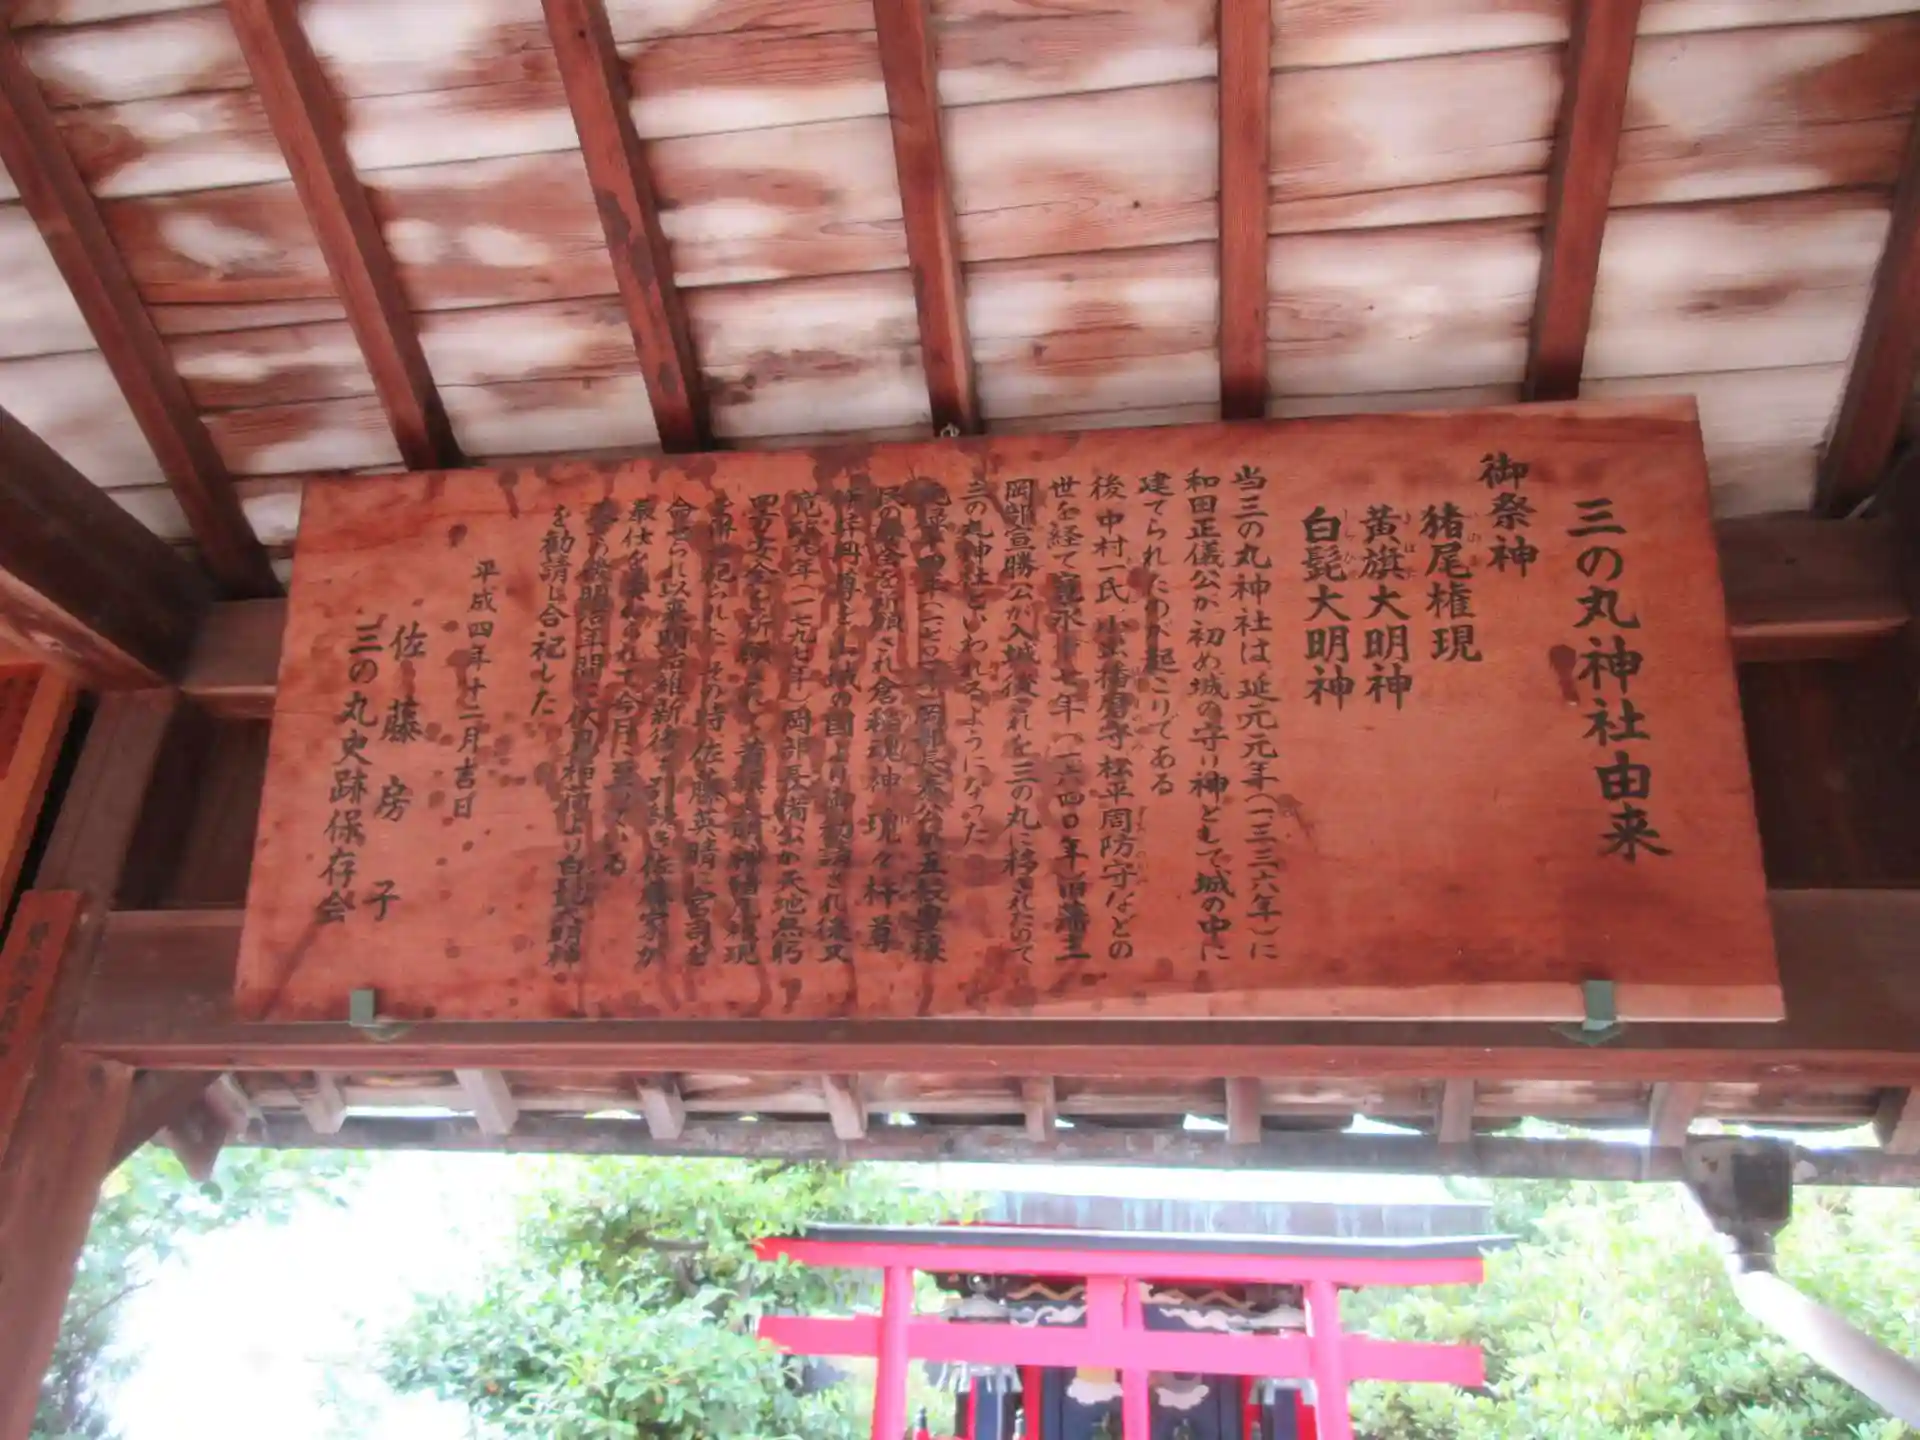 三の丸神社由来
御祭神
猪尾権現
黄旗大明神
白髭大明神
当三の丸神社は延元元年(一三三六年)に
和田正儀公が初め城の守り神として城の中に
建てられたのが起こりである
後中村一氏 小出播磨守 松平周防守などの
世を経て寛永十七年(一六四〇年)旧藩主
岡部宣勝公が入城後これを三の丸に移されたので
三の丸神社といわれるようになった
岡部長泰公が五穀豊穣
民の 全を祈願され倉稲魂神 瓊々杵尊
山城の国より御勧請され後又
寛政九年(一七九七年)岡部長備公が天地無窮
四方安全を祈願されて黄旗大明神猪尾権現
を併せ祀られたその時佐藤英晴に宮司を
命ぜられ以来明治維新後も引続き佐藤家が
奉仕を 今日に至っている
明治年間に伏見稲荷より白髭大明神
を勧請し合祀した
平成四年十二月吉日
佐藤房子
三の丸史跡保存会